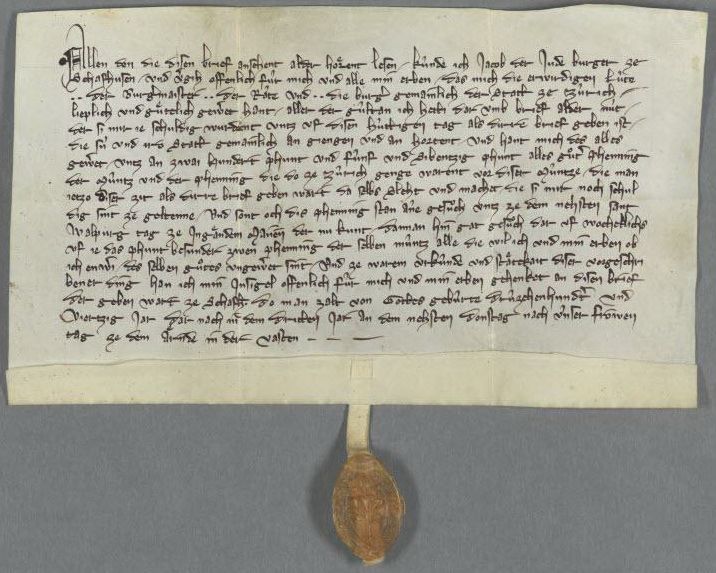 Allen den die disen brief ansehent alder hoͤrent lesen / kuͥnde ich Jacob der Jude burger ze
Schafhusen / vnd vergih offenlich fuͥr mich vnd alle min erben / das mich die erwirdigen Luͥte
.. der Burgermaister .. der Rate vnd .. die burger gemainlich der Statt ze Zuͥrich /
lieplich vnd guͤtlich gewert hant / aller der guͤltan ich hetti dar vmb brief alder nuͥt /
der si mir ie schuldig wurdent vntz vf disen huͥttigen tag als dirre brief geben ist /
die su und Statt gemainlich an giengen vnd an horeten vnd hant mich des alles
gewert vntz an zwai hundert phunt vnd fuͥnf vnd Sibentzig phunt alles guͦter phenning
der Muͥntz vnd der phenning die do ze Zuͥrich genge warent vor diser Muͥntze / die man
ietzo diser zit als dirre brief geben wart da selbs Sleht vnd machet die si mir noch schul
dig sint ze geltenne / Vnd sont och dis phenning stan ane gesuͦch vntz ze dem nehsten sant
Walpurg tag ze Ingandem Maͤien der nu kunt / dannan hin gat gesuͦch dar vf wochenklichs
vf ie das phunt besunder zwen phenning der selben muͥntz alle die wil ich vnd min erben ob
ich enwer des selben guͦtes vngewert sint / Vnd ze warem vrkuͥnde vnd staͤtekait diser vorgeschri
bener ding han ich min Insigel offenlich fuͥr mich vnd min erben gehenket an disen brief
der geben wart ze Schafh do man zalt von Gottes gebuͥrte druͥzehenhundert vnd
Viertzig Jar dar nach in dem dritten Jar an dem nehsten donstag nach vnser frowen
tag ze dem Arnde in der vasten